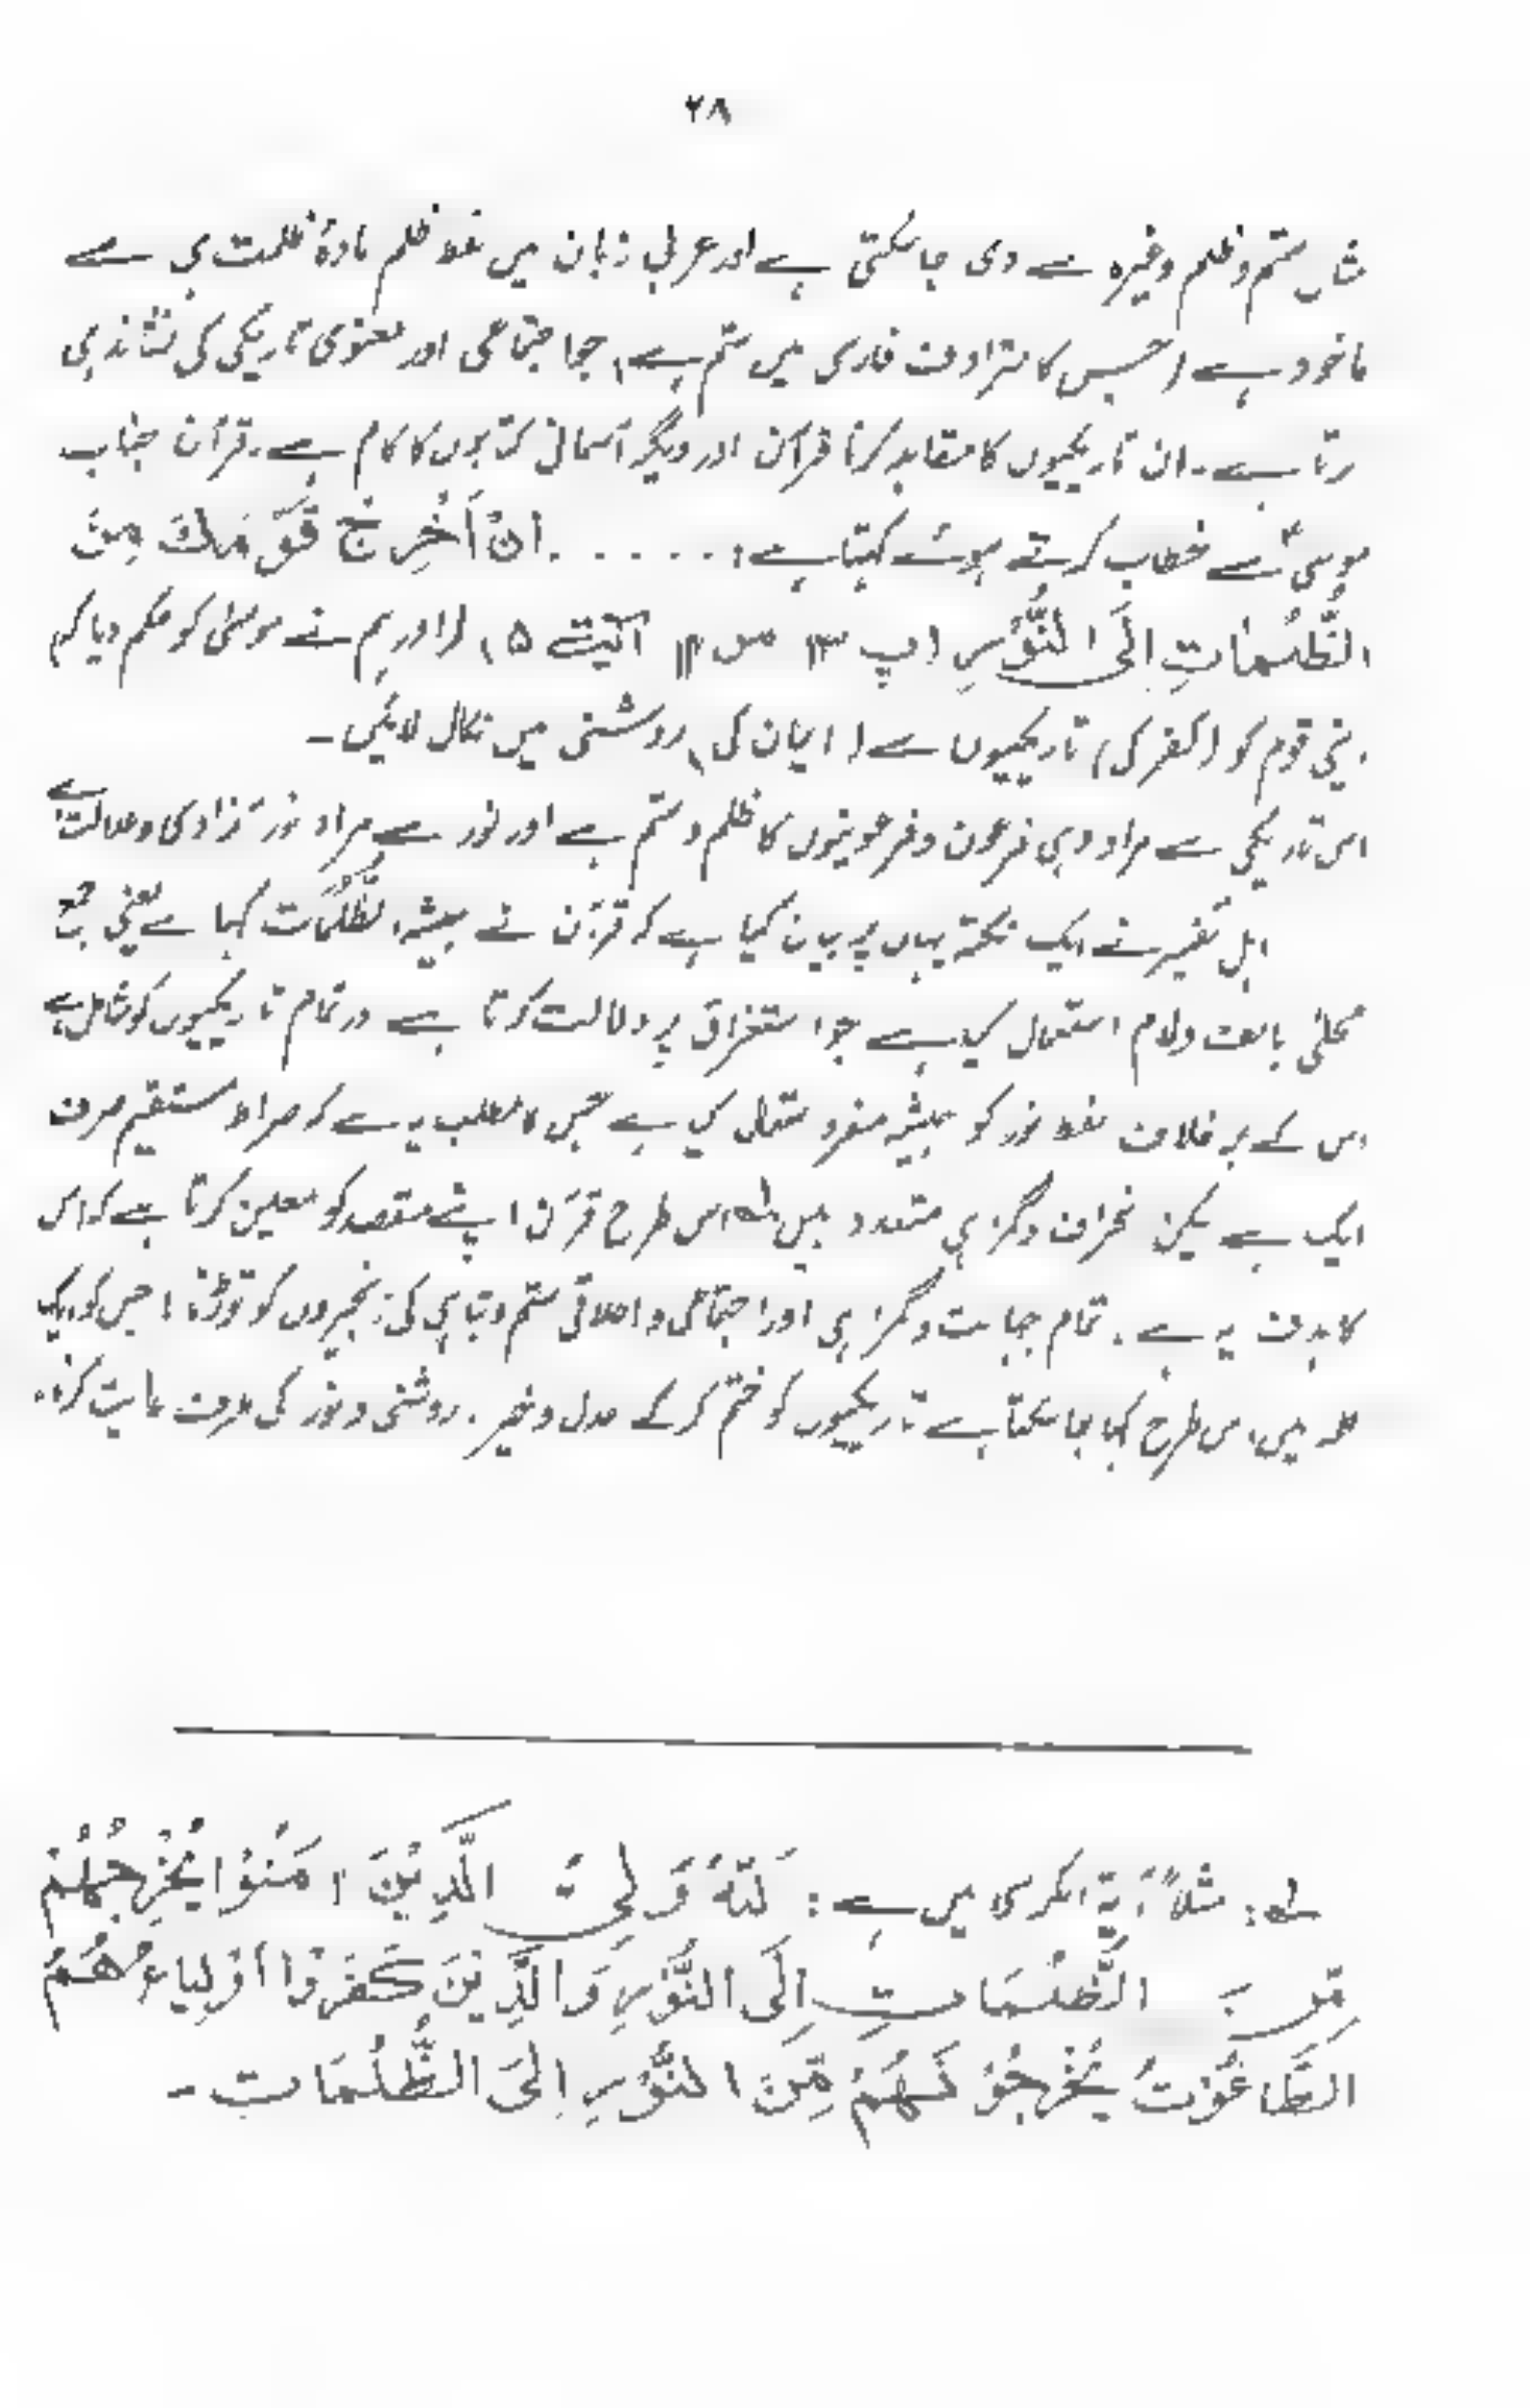 ۲۸
مثال ستم و ظلم وغیرہ سے دی جا سکتی ہے اور عربی زبان میں لفظ ظلم مادۂ ظلمت ہی سے
ماخوذ ہے (جس کا مترادف فارسی میں ستم ہے) جو اجتماعی اور معنوی تاریکی کی نشاندہی
کرتا ہے۔ ان تاریکیوں کا مقابلہ کرنا قرآن اور دیگر آسمانی کتابوں کا کام ہے۔ قرآن جناب
موسیٰؑ سے خطاب کرتے ہوئے کہتا ہے: ...... اَنْ اَخْرِجْ قَوْمَكَ مِنَ
الظُّلُمَاتِ اِلَی النُّوْرِ (پ ۱۳ س ۱۴ آیت ۵) (اور ہم نے موسیٰ کو حکم دیا کہ
اپنی قوم کو (کفر کی) تاریکیوں سے (ایمان کی) روشنی میں نکال لائیں۔
اس تاریکی سے مراد وہی فرعون و فرعونیوں کا ظلم و ستم ہے اور نور سے مراد نور آزادی و عدالت ہے
اہل تفسیر نے ایک نکتہ یہاں پر بیان کیا ہے کہ قرآن نے ہمیشہ الظُّلُمَات کہا ہے یعنی جمع
محلی بالف و لام استعمال کیا ہے جو استغراق پر دلالت کرتا ہے اور تمام تاریکیوں کو شامل ہے
اس کے بر خلاف لفظ نور کو ہمیشہ مفرد استعمال کیا ہے جس کا مطلب یہ ہے کہ صراط مستقیم صرف
ایک ہے لیکن انحراف و گمراہی متعدد ہیں لہ اس طرح قرآن اپنے مقصد کو معین کرتا ہے کہ اس
کا ہدف یہ ہے۔ تمام جہالت و گمراہی اور اجتماعی و اخلاقی ستم و تباہی کی زنجیروں کو توڑنا (جس کو ایک
کلمہ میں اس طرح کہا جا سکتا ہے تاریکیوں کو ختم کر کے عدل و خیر۔ روشنی و نور کی طرف ہدایت کرنا۔
لہ: مثلاً آیۃ الکرسی میں ہے: اَللّٰهُ وَلِیُّ الَّذِیْنَ اٰمَنُوْا یُخْرِجُهُمْ
مِّنَ الظُّلُمَاتِ اِلَی النُّوْرِ وَالَّذِیْنَ كَفَرُوْا اَوْلِیَاءُهُمُ
الطَّاغُوْتُ یُخْرِجُوْنَهُمْ مِّنَ النُّوْرِ اِلَی الظُّلُمَاتِ۔